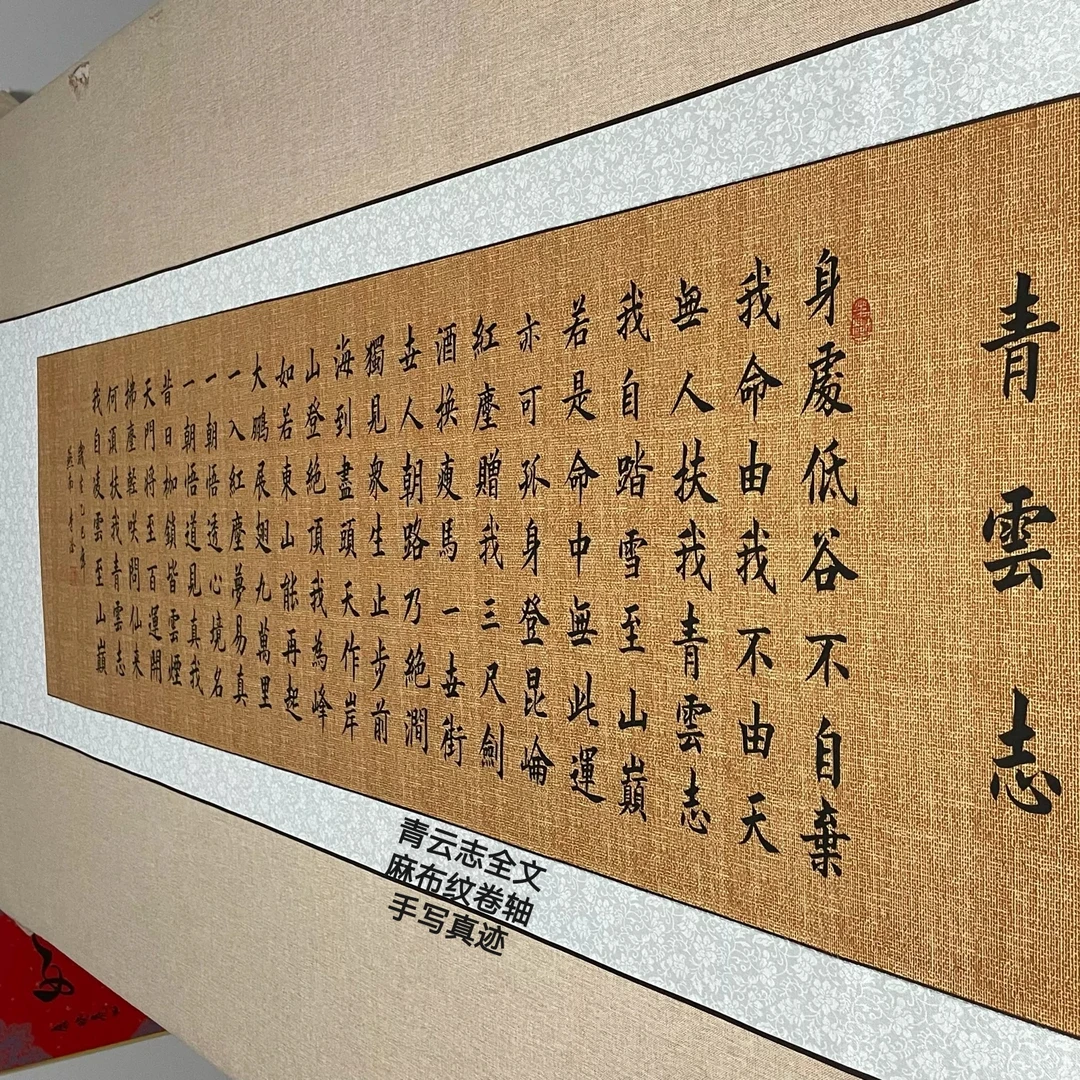 青雲志
身處低谷不自棄
我命由我不由天
無人扶我青雲志
我自踏雪至山巔
若是命中無此運
亦可孤身登昆崙
紅塵贈我三尺劍
酒換瘦馬一世街
世人朝路乃絕澗
獨見衆生止步前
海到盡頭天作岸
山登絕頂我為峰
如若東山能再起
大鵬展翅九萬里
一入紅塵夢易真
一朝悟透心境名
一朝悟道見真我
昔日枷鎖皆雲煙
天門將至百運開
拂塵輕咲問仙来
何須扶我青雲志
我自凌雲至山巔
歲在乙巳年
青云志全文
麻布纹卷轴
手写真迹